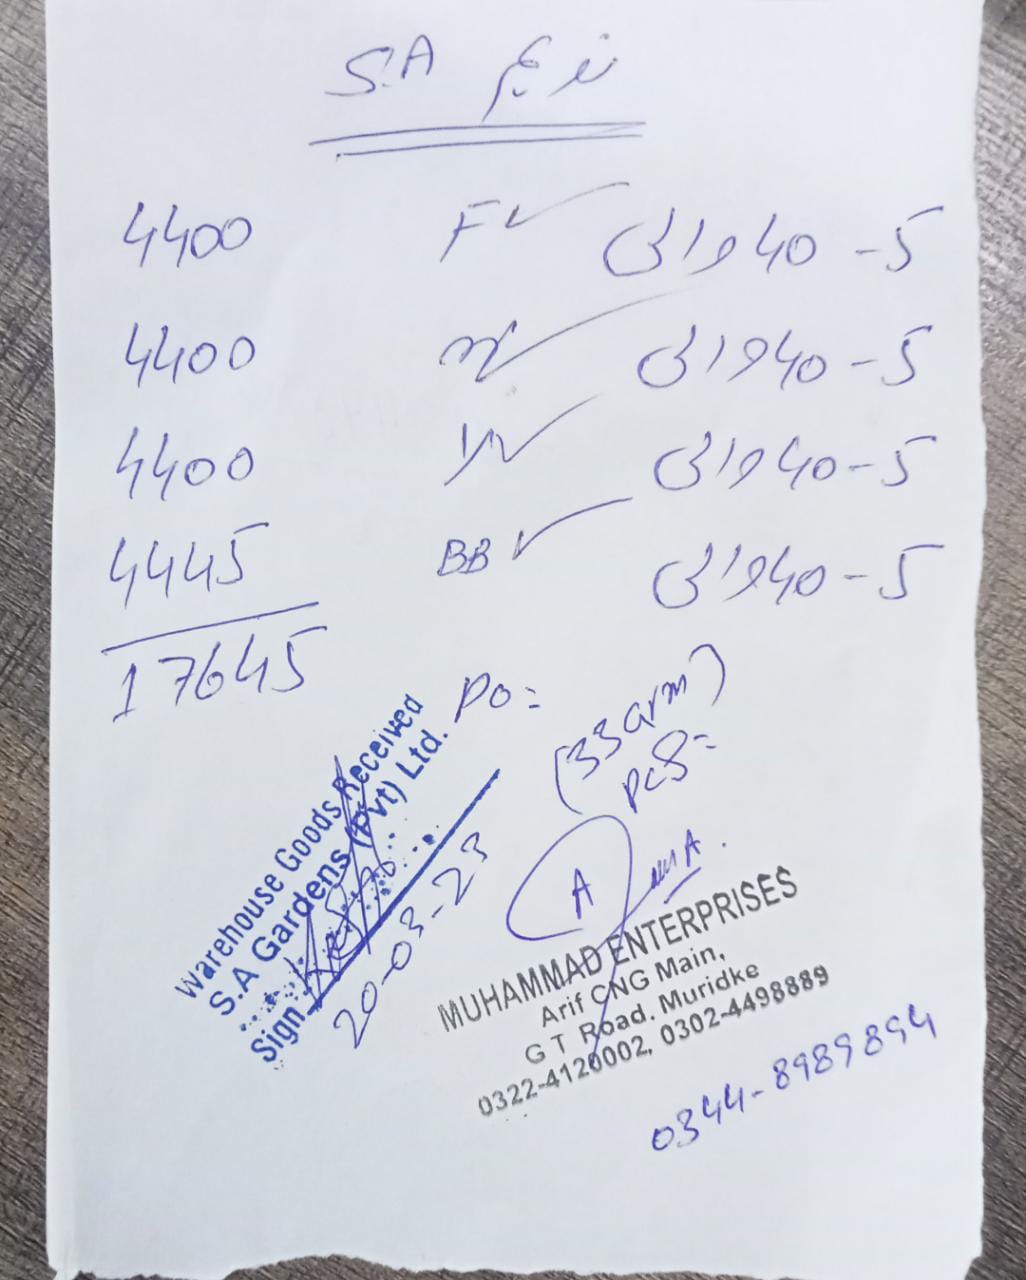 S.A ندیم
4400 F 40-5 والی
4400 40-5 والی
4400 40-5 والی
4445 BB 40-5 والی
17645
PO=
(33 arm)
PCS=
Warehouse Goods Received
S.A Gardens (Pvt) Ltd.
Sign
20-03-23
A
MUHAMMAD ENTERPRISES
Arif CNG Main,
G T Road. Muridke
0322-4120002, 0302-4498889
0344-8989894